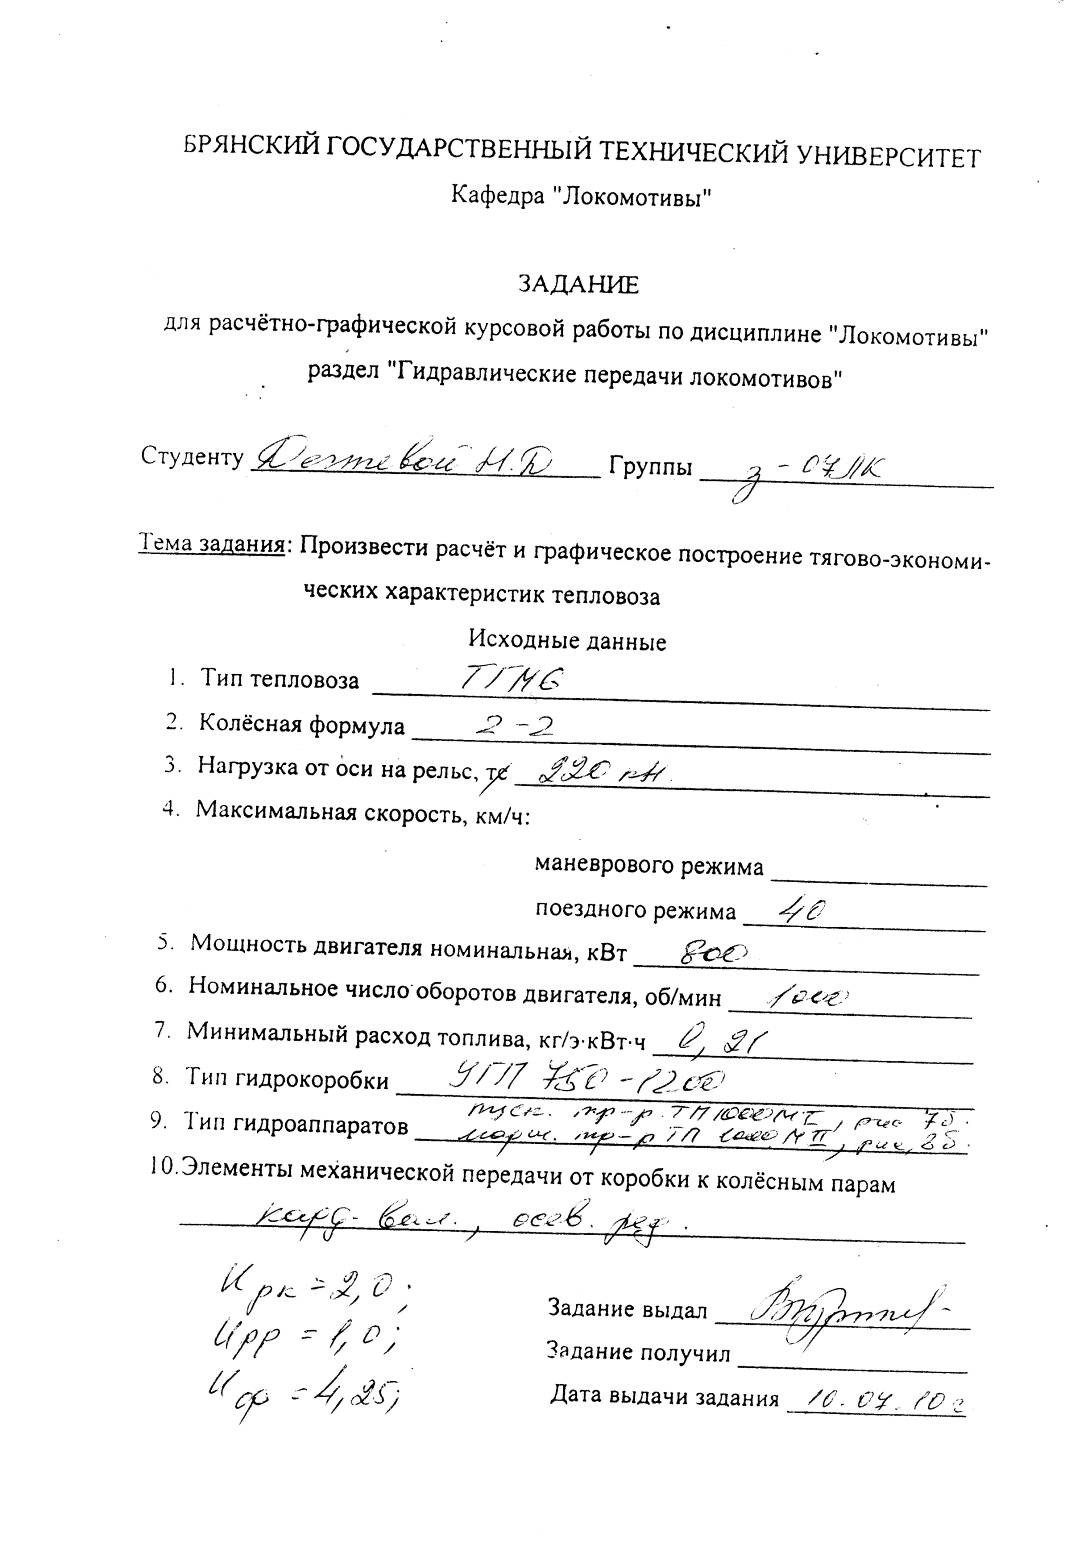 БРЯНСКИЙ ГОСУДАРСТВЕННЫЙ ТЕХНИЧЕСКИЙ УНИВЕРСИТЕТ
Кафедра "Локомотивы"
ЗАДАНИЕ
для расчётно-графической курсовой работы по дисциплине "Локомотивы"
раздел "Гидравлические передачи локомотивов"
Студенту Н.Д Группы з-07ЛК
Тема задания: Произвести расчёт и графическое построение тягово-экономи-
ческих характеристик тепловоза
Исходные данные
1. Тип тепловоза ТГМ6
2. Колёсная формула 2-2
3. Нагрузка от оси на рельс, тс 220 кН.
4. Максимальная скорость, км/ч:
маневрового режима
поездного режима 40
5. Мощность двигателя номинальная, кВт 800
6. Номинальное число оборотов двигателя, об/мин 1000
7. Минимальный расход топлива, кг/э·кВт·ч 0,21
8. Тип гидрокоробки УГП 750-1200
пуск. тр-р ТП1000МI, рис 7б.
9. Тип гидроаппаратов марш. тр-р ТП 1000МII, рис, 8б.
10.Элементы механической передачи от коробки к колёсным парам
кард. вал., осев. ред.
Uрк = 2,0;
Задание выдал
Uрр = 1,0;
Задание получил
Uор = 4,25;
Дата выдачи задания 10.07.10г